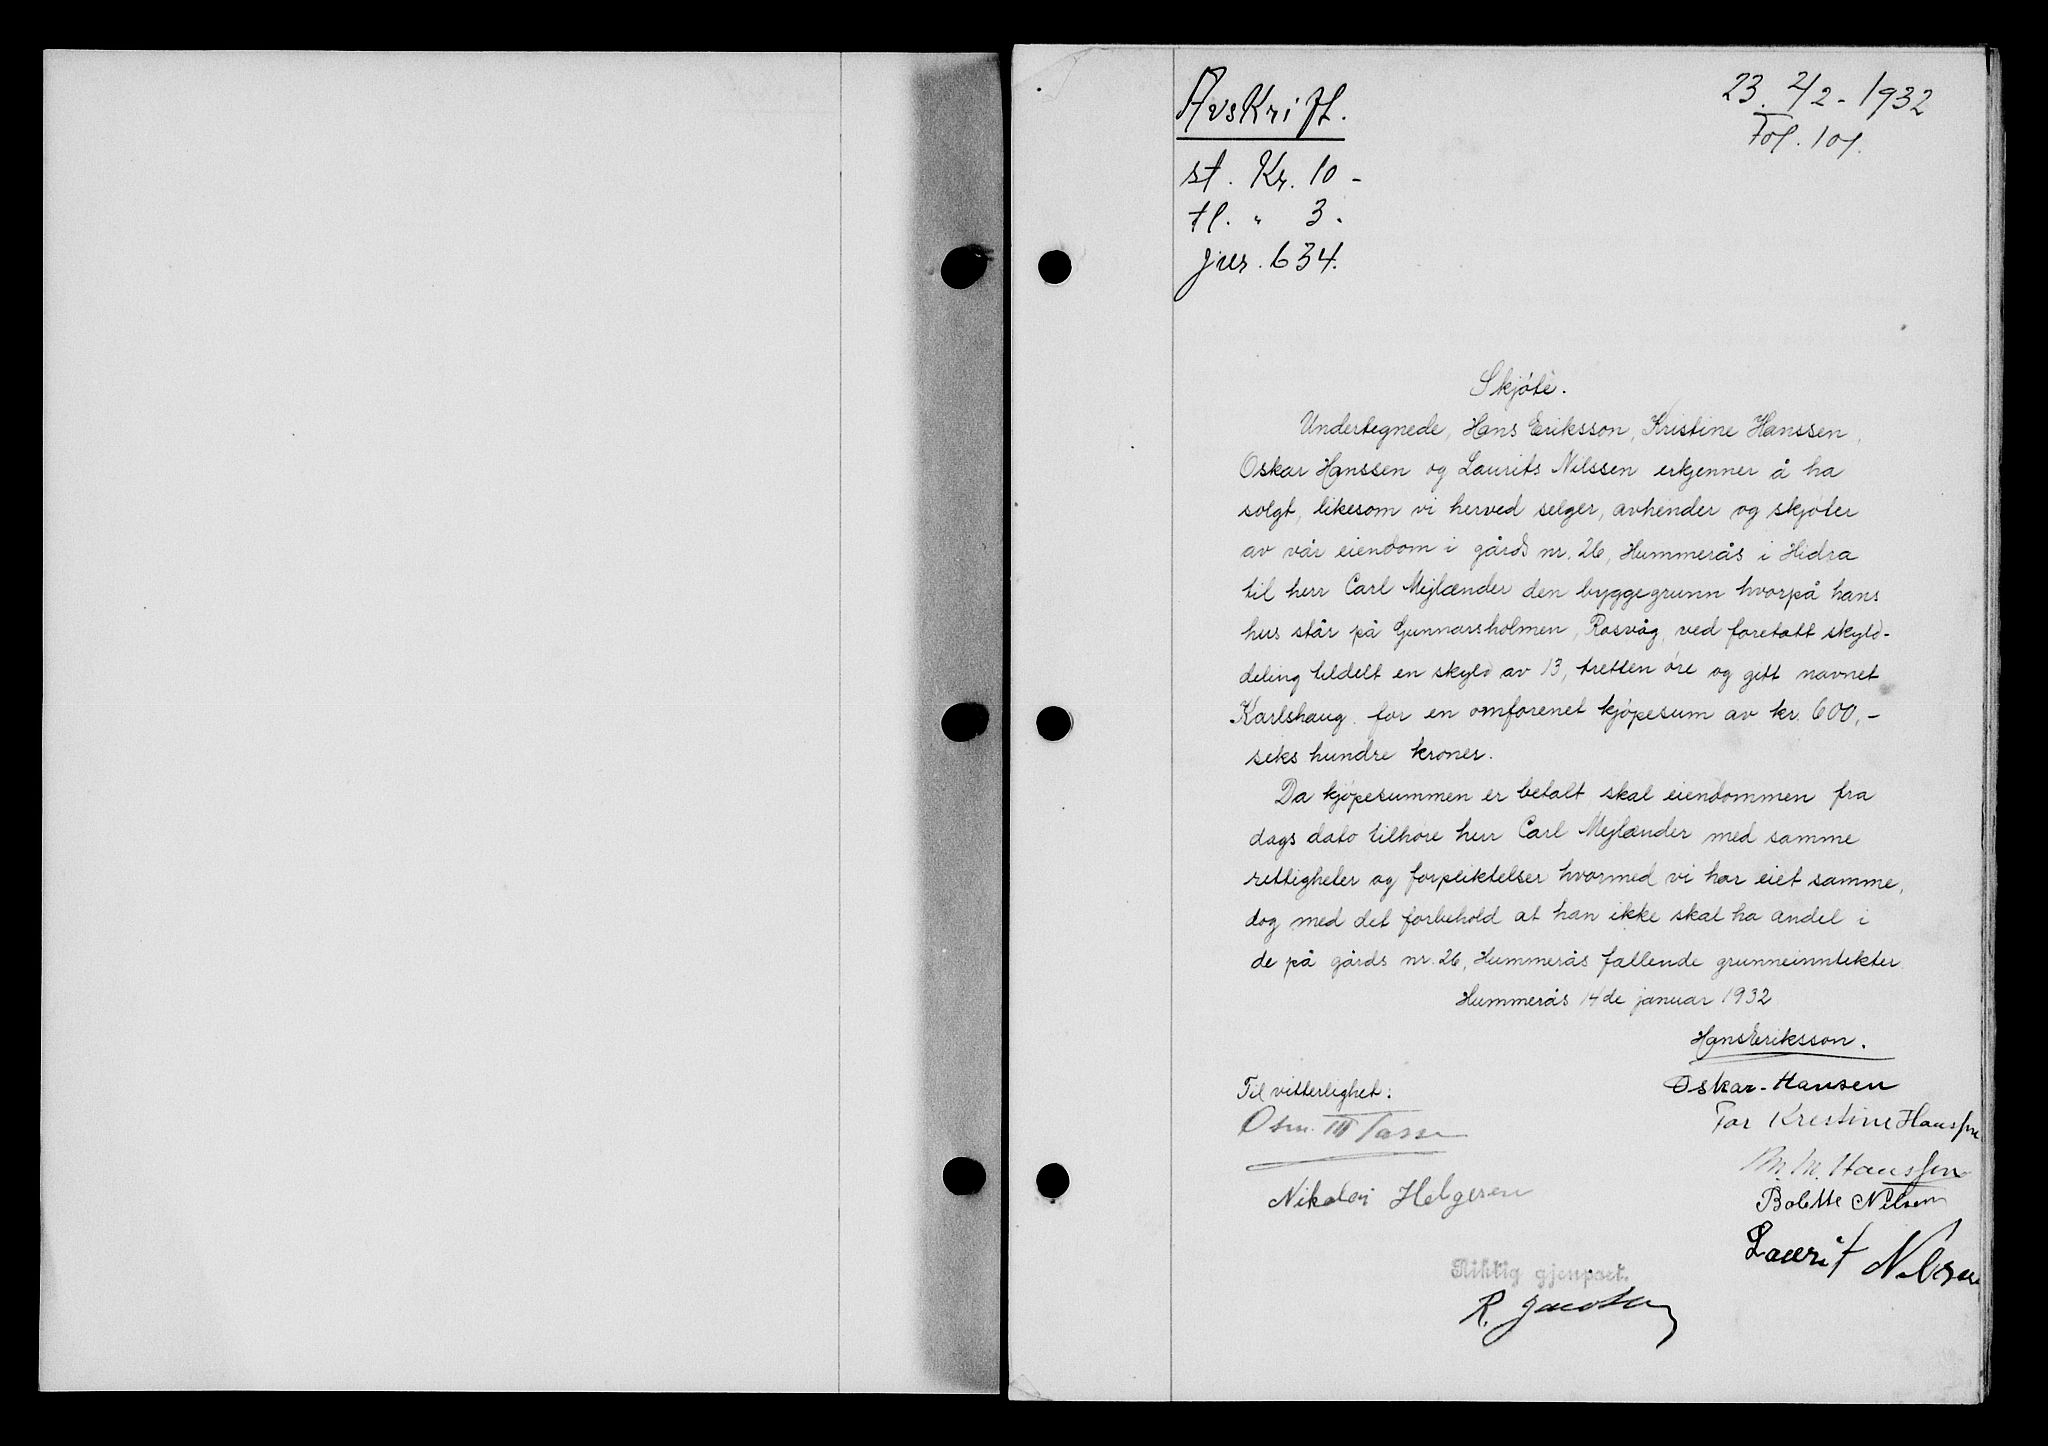 Avskrift.
23. 2/2 - 1932
Fol. 101.
st. Kr. 10 -
tl. " 3.
jur. 634.
Skjøte.
Undertegnede, Hans Eriksson, Kristine Hanssen,
Oskar Hanssen og Laurits Nilssen erkjenner å ha
solgt, likesom vi herved selger, avhender og skjøter
av vår eiendom i gårds nr. 26, Hummerås i Hidra
til herr Carl Mejlænder den byggegrunn hvorpå hans
hus står på Gunnarsholmen, Rasvåg, ved foretatt skyld-
deling tildelt en skyld av 13, tretten øre og gitt navnet
Karlshaug for en omforenet kjøpesum av kr. 600,-
seks hundre kroner.
Da kjøpesummen er betalt skal eiendommen fra
dags dato tilhøre herr Carl Mejlænder med samme
rettigheter og forpliktelser hvormed vi har eiet samme,
dog med det forbehold at han ikke skal ha andel i
de på gårds nr. 26, Hummerås fallende grunneinntekter.
Hummerås 14de januar 1932
Hans Eriksson.
Til vitterlighet:
Oskar Hansen
For Krestine Hanssen
M. Hanssen
Nikolai Helgesen
Bolette Nilsen
Laurit Nilsen
Riktig gjenpart.
R. Jacobsen